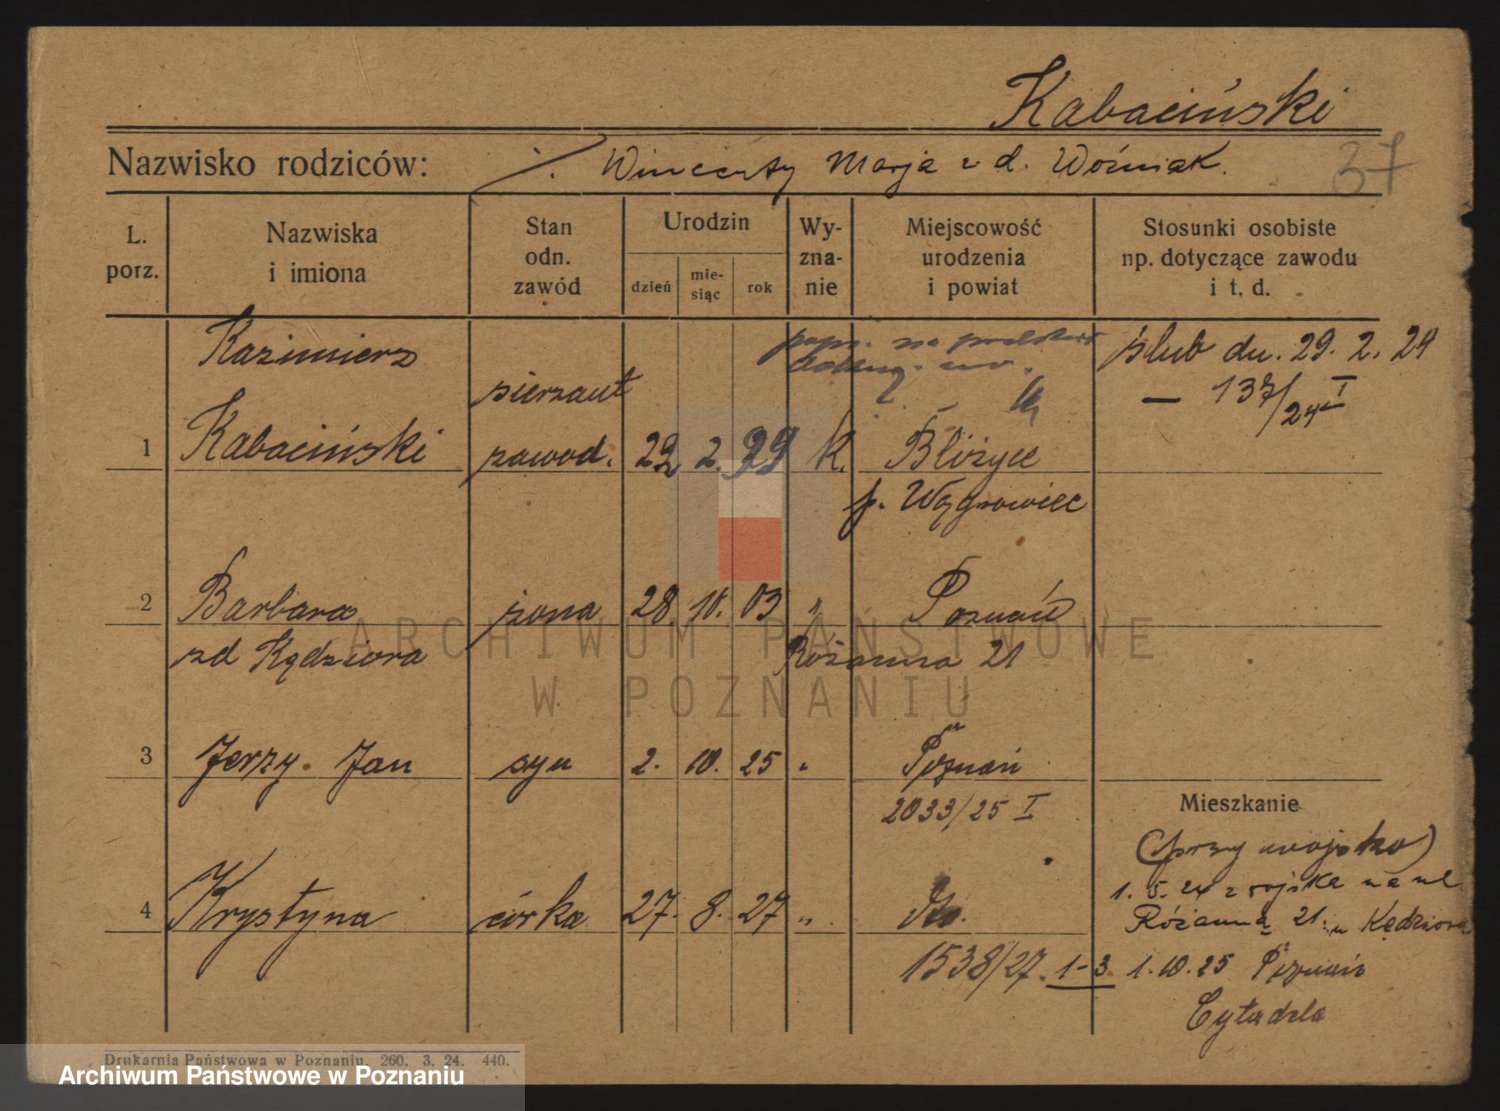 Kabaciński
Nazwisko rodziców: ·/. Wincenty Marja z d. Woźniak.
37
L. porz.
Nazwiska i imiona
Stan odn. zawód
Urodzin
dzień
mie-siąc
rok
Wy-zna-nie
Miejscowość urodzenia i powiat
Stosunki osobiste np. dotyczące zawodu i t. d.
Kazimierz
ślub dn. 29. 2. 24
sierżant
— 137/24 I
1 Kabaciński zawod. 22 2. 99 k. Bliżyce
p. Wągrowiec
2 Barbara żona 28. 10. 03 „ Poznań
zd Kędziora Różanna 21
3 Jerzy Jan syn 2. 10. 25 „ Poznań
2033/25 I
Mieszkanie
(przy wojsku)
1. 5. 24 z wojska na ul
4 Krystyna córka 27. 8. 27 „
Różanną 21. u Kędziora
1538/27. 1-3. 1. 10. 25 Poznań
Cytadela
Drukarnia Państwowa w Poznaniu. 260. 3. 24. 440.
ARCHIWUM PAŃSTWOWE
W POZNANIU
Archiwum Państwowe w Poznaniu